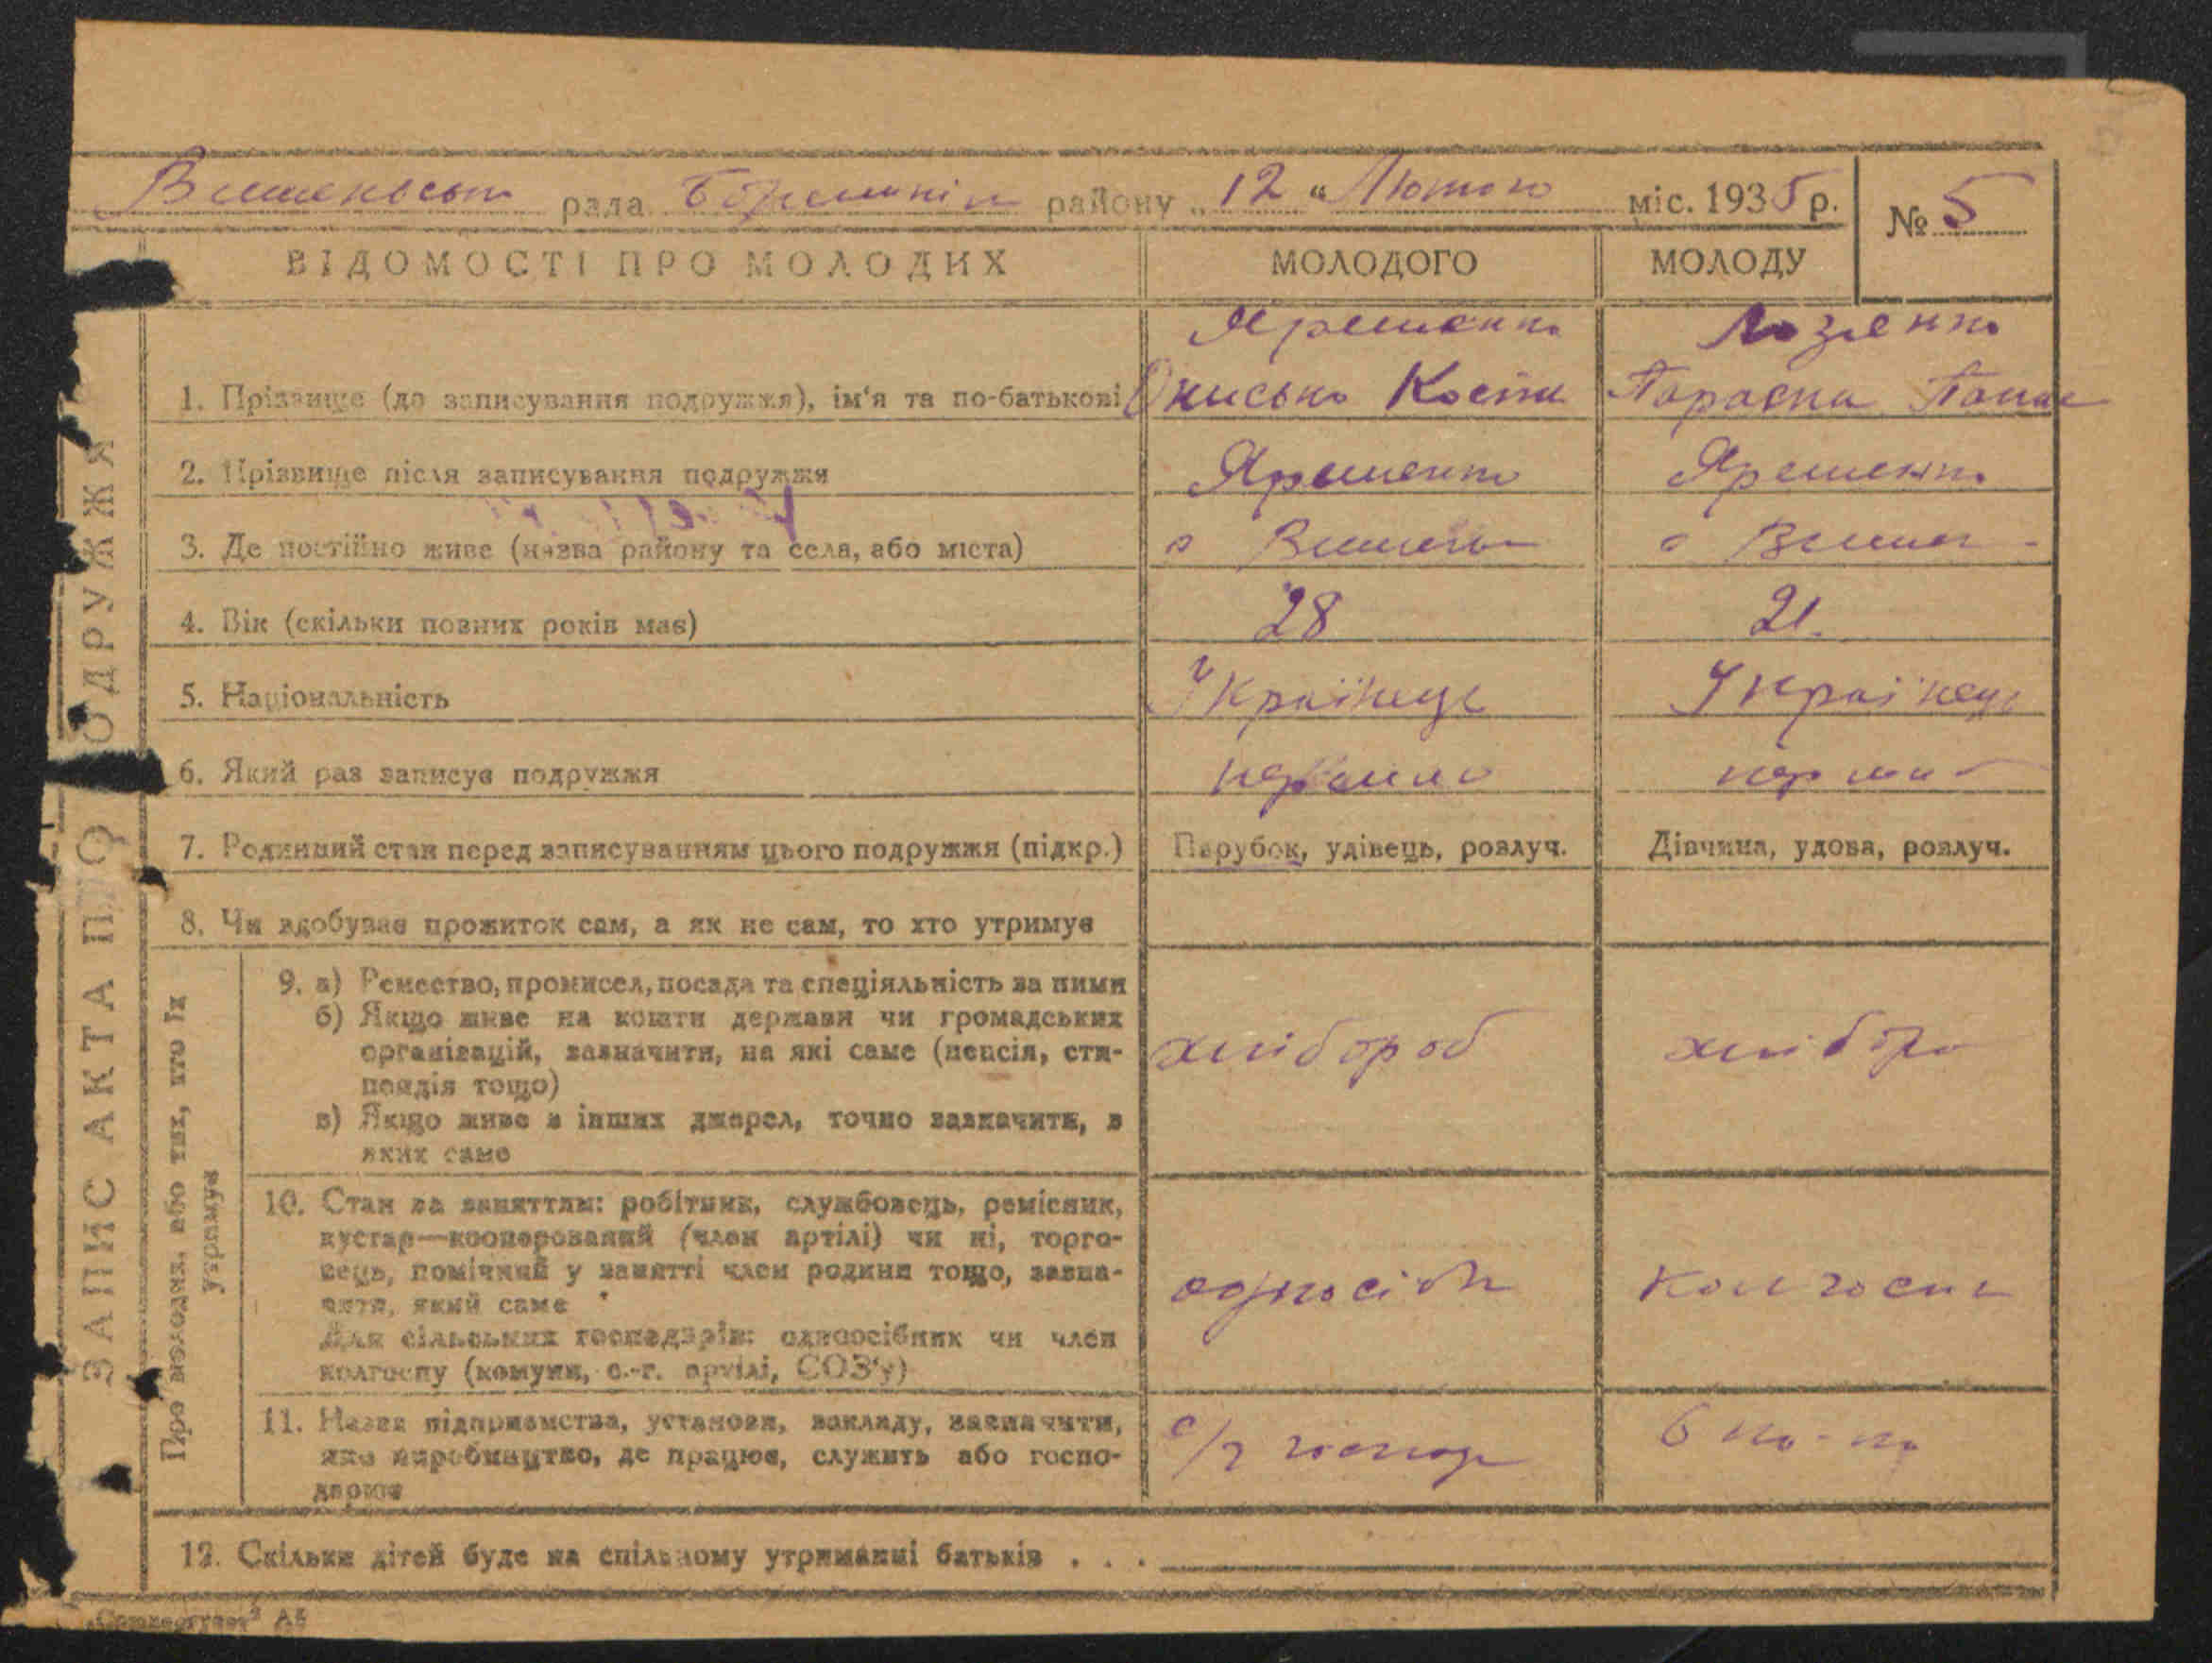 рада району „12“ Лютого міс. 1935 р. № 5
ВІДОМОСТІ ПРО МОЛОДИХ МОЛОДОГО МОЛОДУ
ЗАПИС АКТА ПРО ОДРУЖЖЯ
Ярешенко
1. Прізвище (до записування подружжя), ім'я та по-батькові Онисько Кости Параска Панас
2. Прізвище після записування подружжя Ярешенко Ярешенко
3. Де постійно живе (назва району та села, або міста)
4. Вік (скільки повних років має) 28 21.
5. Національність Українець Українець
6. Який раз записує подружжя
7. Родинний стан перед записуванням цього подружжя (підкр.) Парубок, удівець, розлуч. Дівчина, удова, розлуч.
8. Чи здобуває прожиток сам, а як не сам, то хто утримує
Про молодих, або тих, хто їх утримує
9. а) Ремество, промисел, посада та спеціяльність за ними
б) Якщо живе на кошти держави чи громадських
організацій, зазначити, на які саме (пенсія, сти-
пендія тощо) хлібороб хлібор
в) Якщо живе з інших джерел, точно зазначити, з
яких саме
10. Стан за заняттям: робітник, службовець, ремісник,
кустар—кооперований (член артілі) чи ні, торго-
вець, помічний у занятті член родини тощо, зазна-
чити, який саме односібн колгосп
Для сільських господарів: одноосібник чи член
колгоспу (комуни, с.-г. артілі, СОЗ'у)
11. Назва підприємства, установи, закладу, зазначити,
яке виробництво, де працює, служить або госпо-
дарює с/г господ
12. Скільки дітей буде на спільному утриманні батьків . . .